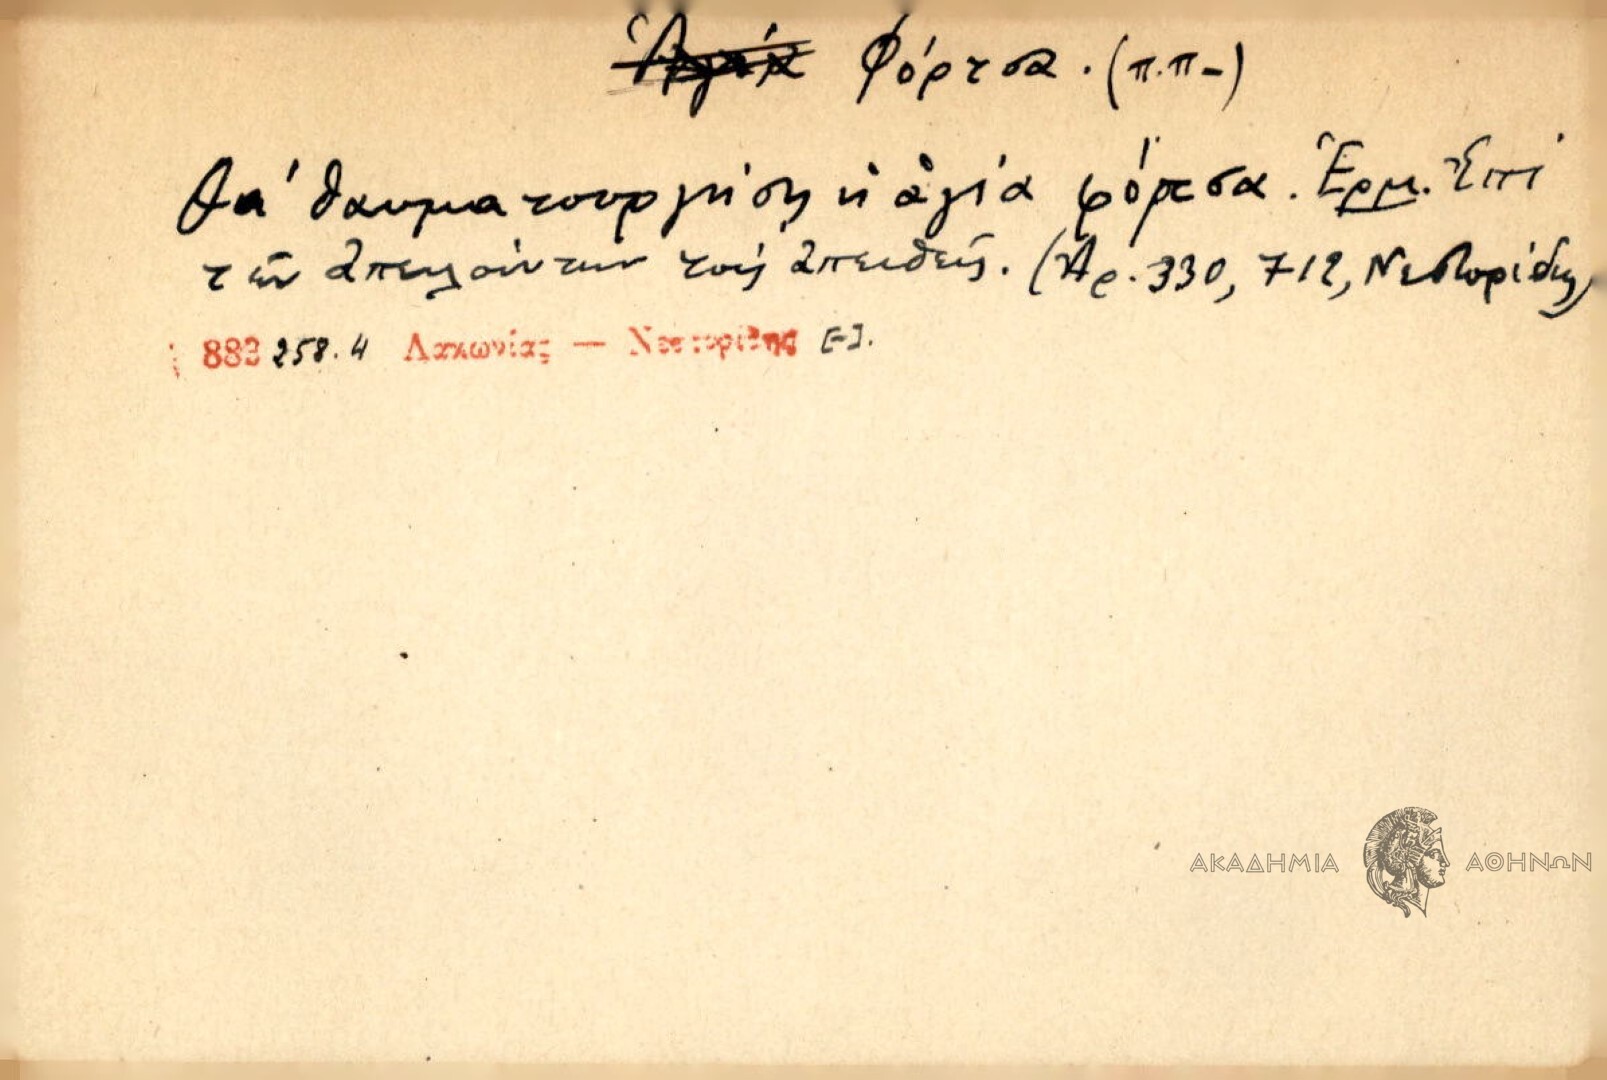 Ἁγιά Φόρτσα. (π.π-)
Θα' θαυματουργήση ἡ ἁγία φόρτσα. Ἑρμ. Ἐπὶ
τῶν ἀπειλούντων τοὺς ἀπειθεῖς. (Ἀρ. 330, 712, Νεστορίδης)
882 258.4 Λακωνίας — Νεστορίδης [-].
ΑΚΑΔΗΜΙΑ ΑΘΗΝΩΝ